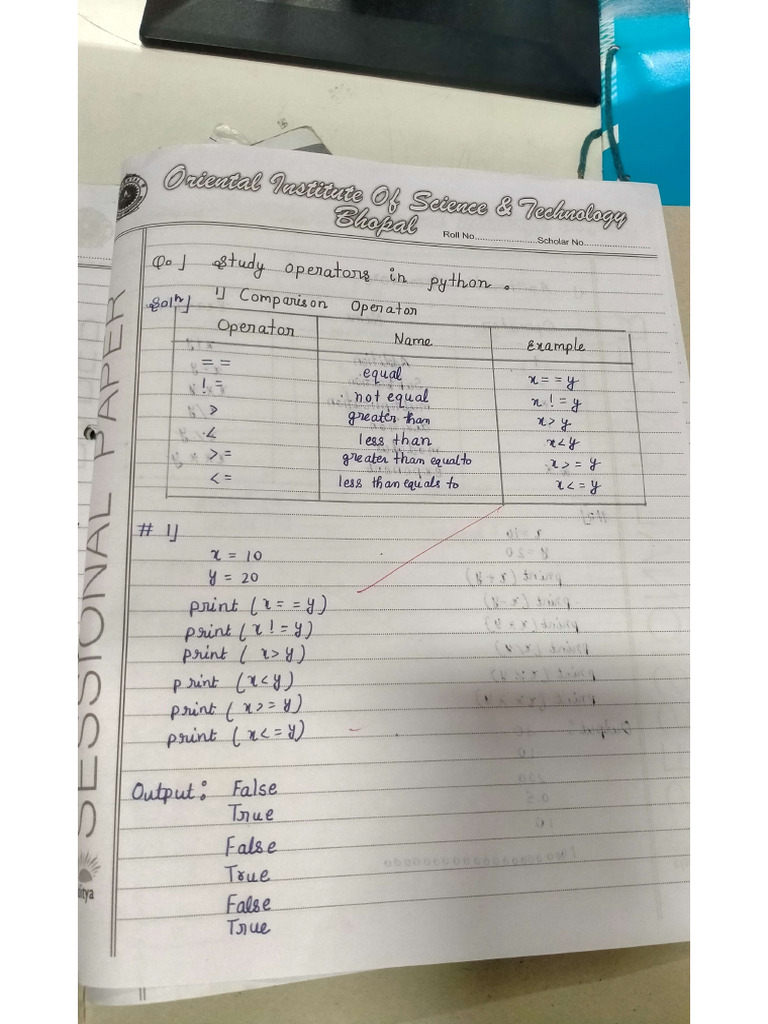 Oriental Institute Of Science & Technology
Bhopal
Roll No.......................Scholar No......................
Qo] Study operators in python.
Soln] 1] Comparison Operator
Operator Name Example
= = equal x = = y
! = not equal x ! = y
> greater than x > y
< less than x < y
> = greater than equal to x > = y
< = less than equals to x < = y
# 1]
x = 10
y = 20
print ( x = = y )
print ( x ! = y )
print ( x > y )
print ( x < y )
print ( x > = y )
print ( x < = y )
Output: False
True
False
True
False
True
SESSIONAL PAPER